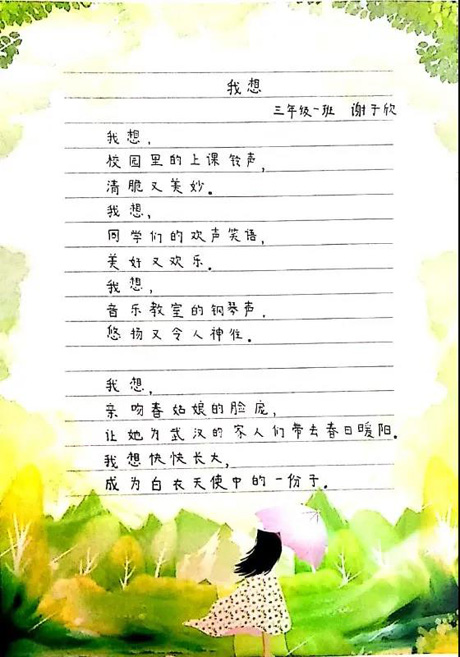 我想
三年级一班 谢于欣
我想，
校园里的上课铃声，
清脆又美妙。
我想，
同学们的欢声笑语，
美好又欢乐。
我想，
音乐教室的钢琴声，
悠扬又令人神往。
我想，
亲吻春姑娘的脸庞，
让她为武汉的家人们带去春日暖阳。
我想快快长大，
成为白衣天使中的一份子。